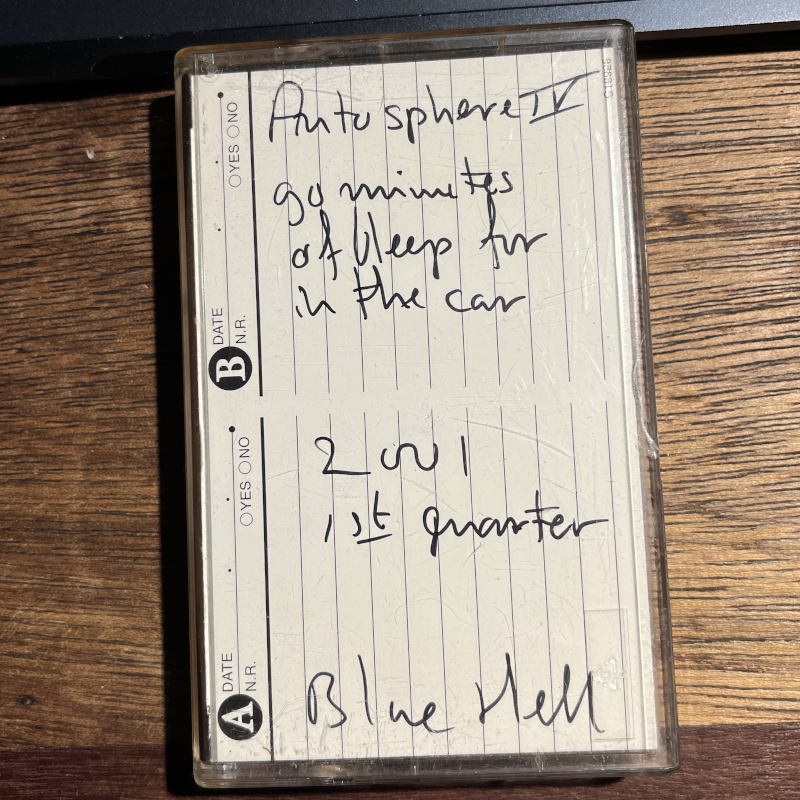 Autosphere IV
90 minutes
of bleep for
in the car
2001
1st quarter
Blue Hell
B DATE
N.R.
YES NO
A DATE
N.R.
YES NO